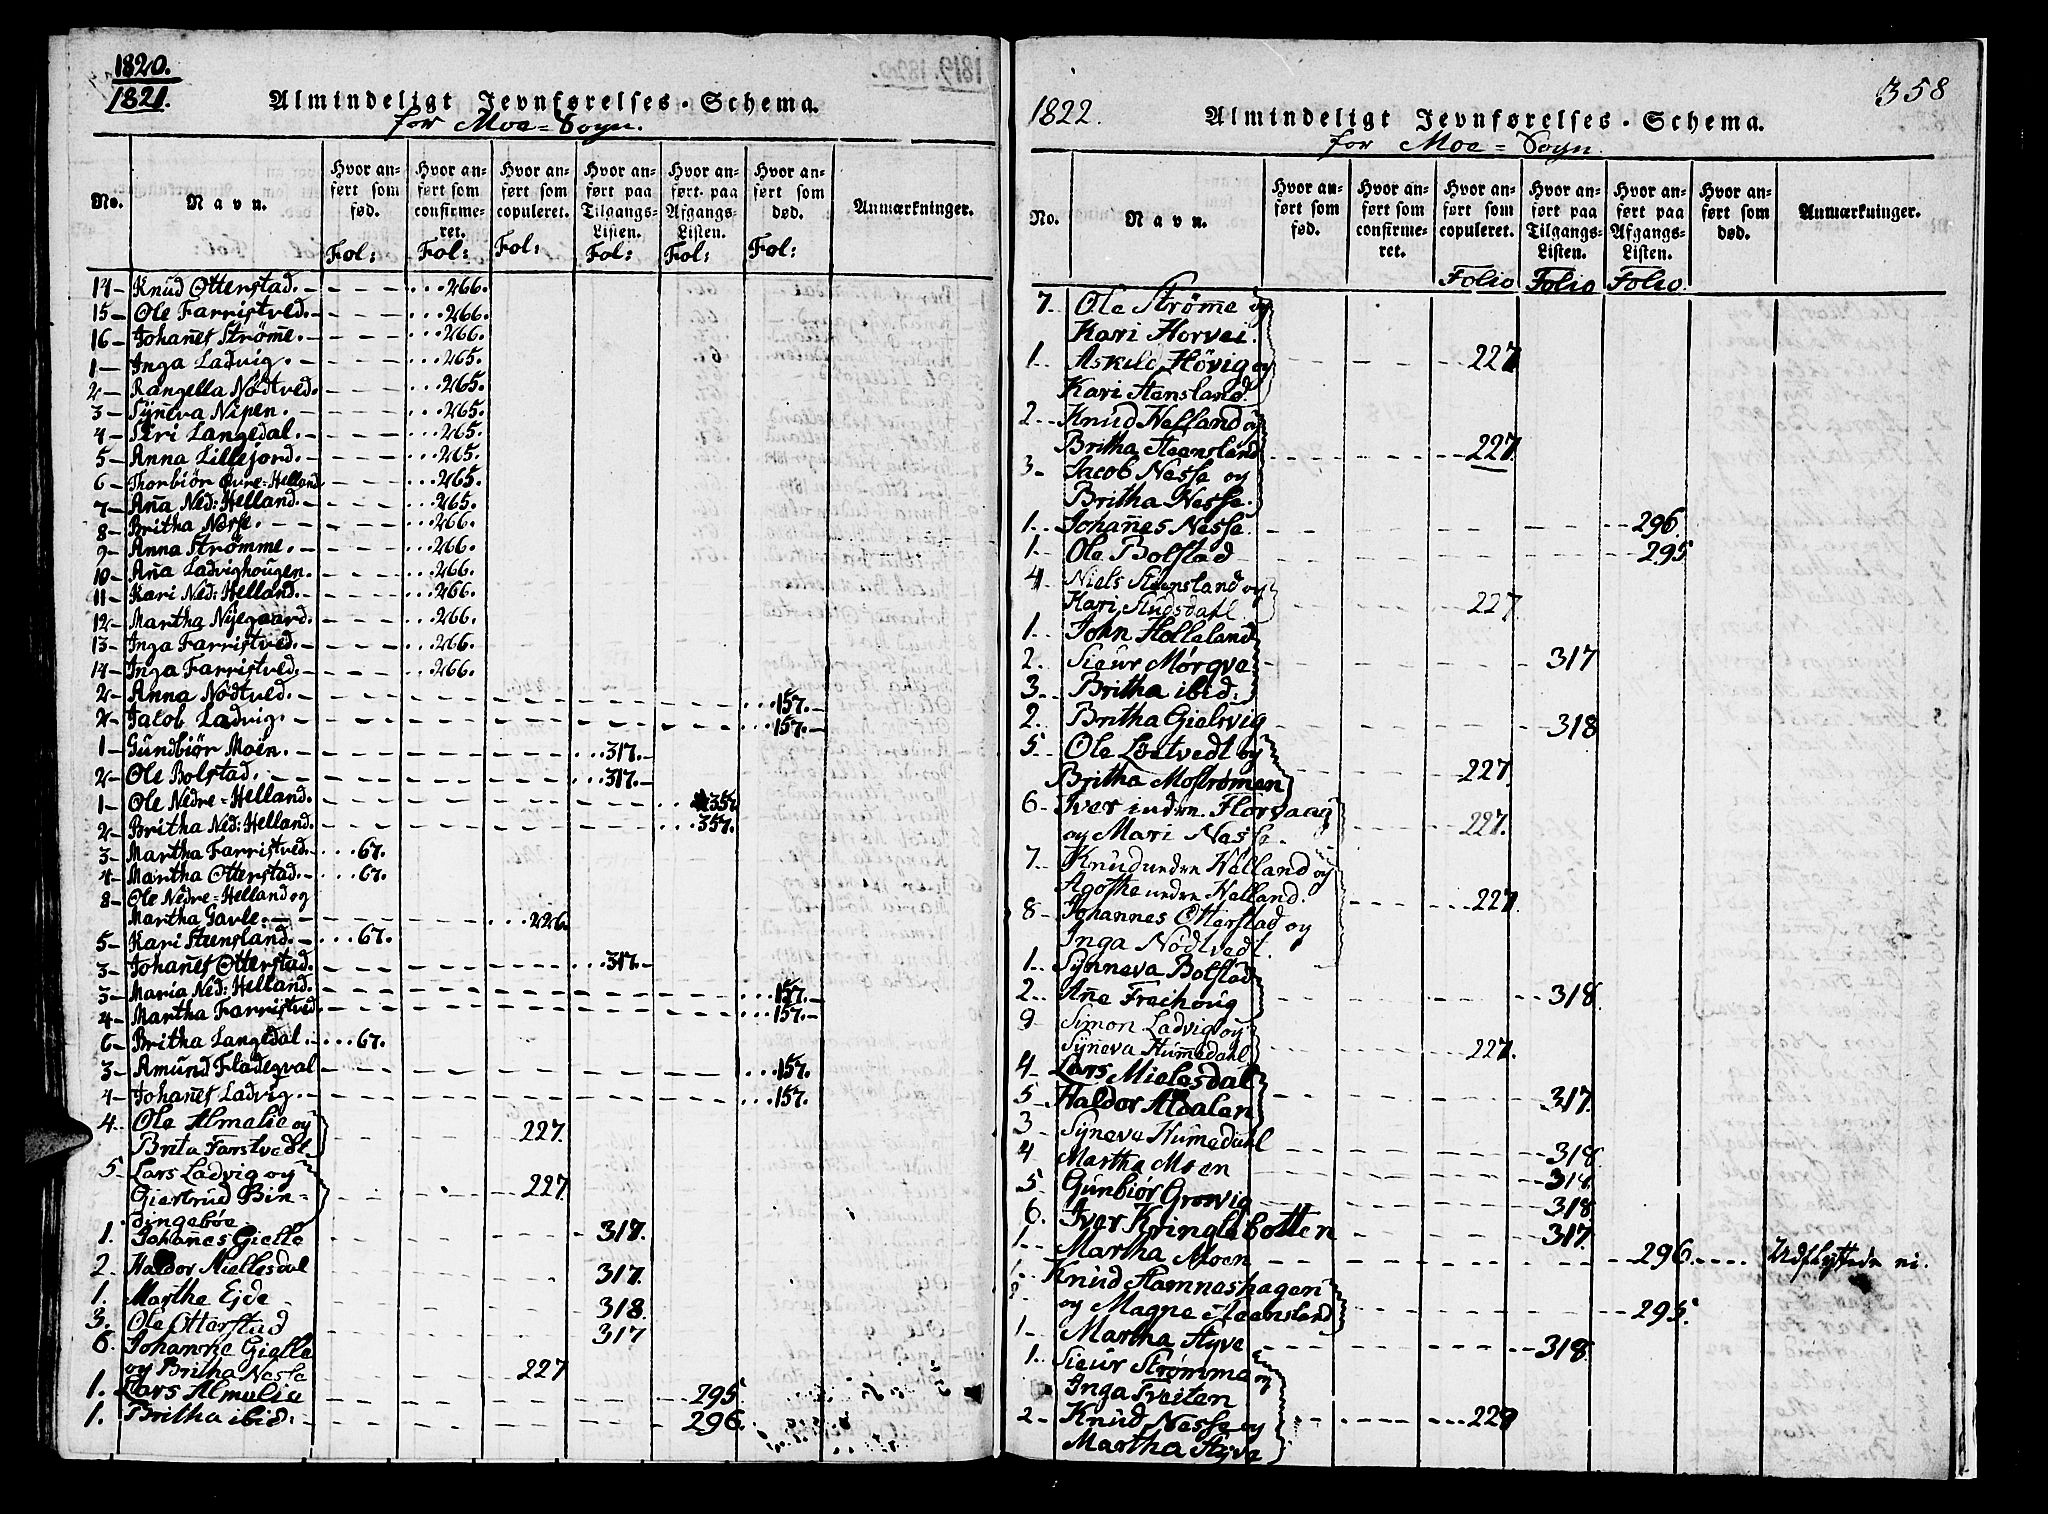 1820.
1821.
Almindeligt Jevnførelses-Schema.
for Moe-Sogn.
No.
Navn.
Hvor anført som fød.
Hvor anført som confirmeret.
Hvor anført som copuleret.
Hvor anført paa Tilgangs-Listen.
Hvor anført paa Afgangs-Listen.
Hvor anført som død.
Anmærkninger.
Fol: Fol: Fol: Fol: Fol: Fol:
14 - Knud Otterstad. - - - ...266.
15 - Ole Farristved. - - - ...266.
16 - Johañes Strøm̃e. - - - ...266.
1 - Inga Ladvig. - - - ...265.
2 - Rangella Nödtved. - - - ...265.
3 - Syñeva Nipen. - - - ...265.
4 - Siri Langedal. - - - ...265.
5 - Anna Lillejord. - - - ...265.
6 - Thorbiör Øvre-Helland ...265.
7 - Aña Ned: Helland. - - - ...265.
8 - Britha Nesse. - - - ...266.
9 - Anna Strømme. - - - ...266.
10 - Aña Ladvighougen. - - - ...266.
11 - Kari Ned: Helland. - - - ...266.
12 - Martha Nijegaard. - - - ...266.
13 - Inga Farristved. - - - ...266.
14 - Inga Farristved. - - - ...266.
2 - Anna Nödtved. - - - ...157. -
2 - Jacob Ladvig. - - - ...157. -
1 - Gundbiör Moen. - - - ...317. -
2 - Ole Bolstad. - - - ...317. -
1 - Ole Nedre-Helland. - - - 357
2 - Britha Ned: Helland. - - - ...357.
3 - Martha Farristved. ...67.
4 - Martha Otterstad. - ...67.
8 - Ole Nedre-Helland og
Martha Gavle. - - - ...226.
5 - Kari Steensland. - ...67.
3 - Johañes Otterstad. - - - ...317. -
3 - Maria Ned: Helland. - - - ...157. -
4 - Martha Farristved. - - - ...157. -
6 - Britha Langedal. - ...67.
3 - Amund Fladeqval - - - ...157.
4 - Johañes Ladvig. - - - ...157.
4. Ole Almelie og
Brita Farstvedt. - - - 227.
5 Lars Ladvig og
Giertrud Bin-
dingebøe - - - 227.
1. Johañes Gielle - - - 317.
2 Haldor Miellesdal - - - 317.
1. Marthe Ejde - - - 318.
3. Ole Otterstad - - - 317
6. Johanne Gielle
og Britha Nesse - - - 227
1. Lars Almelie - - - 295.
1. Britha ibid. - - - 296.
358
1822.
Almindeligt Jevnførelses-Schema.
for Moe-Sogn.
No.
Navn.
Hvor anført som fød.
Hvor anført som confirmeret.
Hvor anført som copuleret.
Hvor anført paa Tilgangs-Listen.
Hvor anført paa Afgangs-Listen.
Hvor anført som død.
Anmærkninger.
Folio Folio Folio.
7. Ole Strøm̃e og
Kari Horvei.
1. Askild Hövig og - - - 227
Kari Stensland.
2. Knud Helland og
Britha Steensland - - - 227
3 - Jacob Nesse og
Britha Nesse.
1. Johañes Nesse. - - - 296.
1. Ole Bolstad - - - 295
4 Niels Steensland og
Kari Studsdahl. - - - 227.
1. John Holleland
2. Sieur Mörqve - - - 317
3. Britha ibid.
2. Britha Gielsvig - - - 318
5 Ole Løtvedt og
Britha Moströmen - - - 227.
6 - Iver indre Florvaag
og Mari Nesse. - - - 227.
7 - Knud nedre Helland og
Agothe nedre Helland. - - - 227.
8 - Johannes Otterstad og
Inga Nödtvedt.
1. Synneva Bolstad
2. Añe Freihoug - - - 318.
9 Simon Ladvig og
Syñeva Hum̃edahl - - - 227.
4. Lars Mielesdal
5 Haldor Aldalen - - - 317.
3 Syñeva Humedahl - - - 318.
4 Martha Moen - - - 318.
5 Gunbiör Growig - - - 318
6. Iver Kringlebotten - - - 317.
1. Martha Moen - - - 296. .... Udflyttede ei.
1. Knud Hamneshagen
og Magne Steensland - - - 295.
1 - Martha Styve - - - 318
1. Sieur Strømme og
Inga Traiten
2 - Knud Nesse og - - - 228
Martha Styve